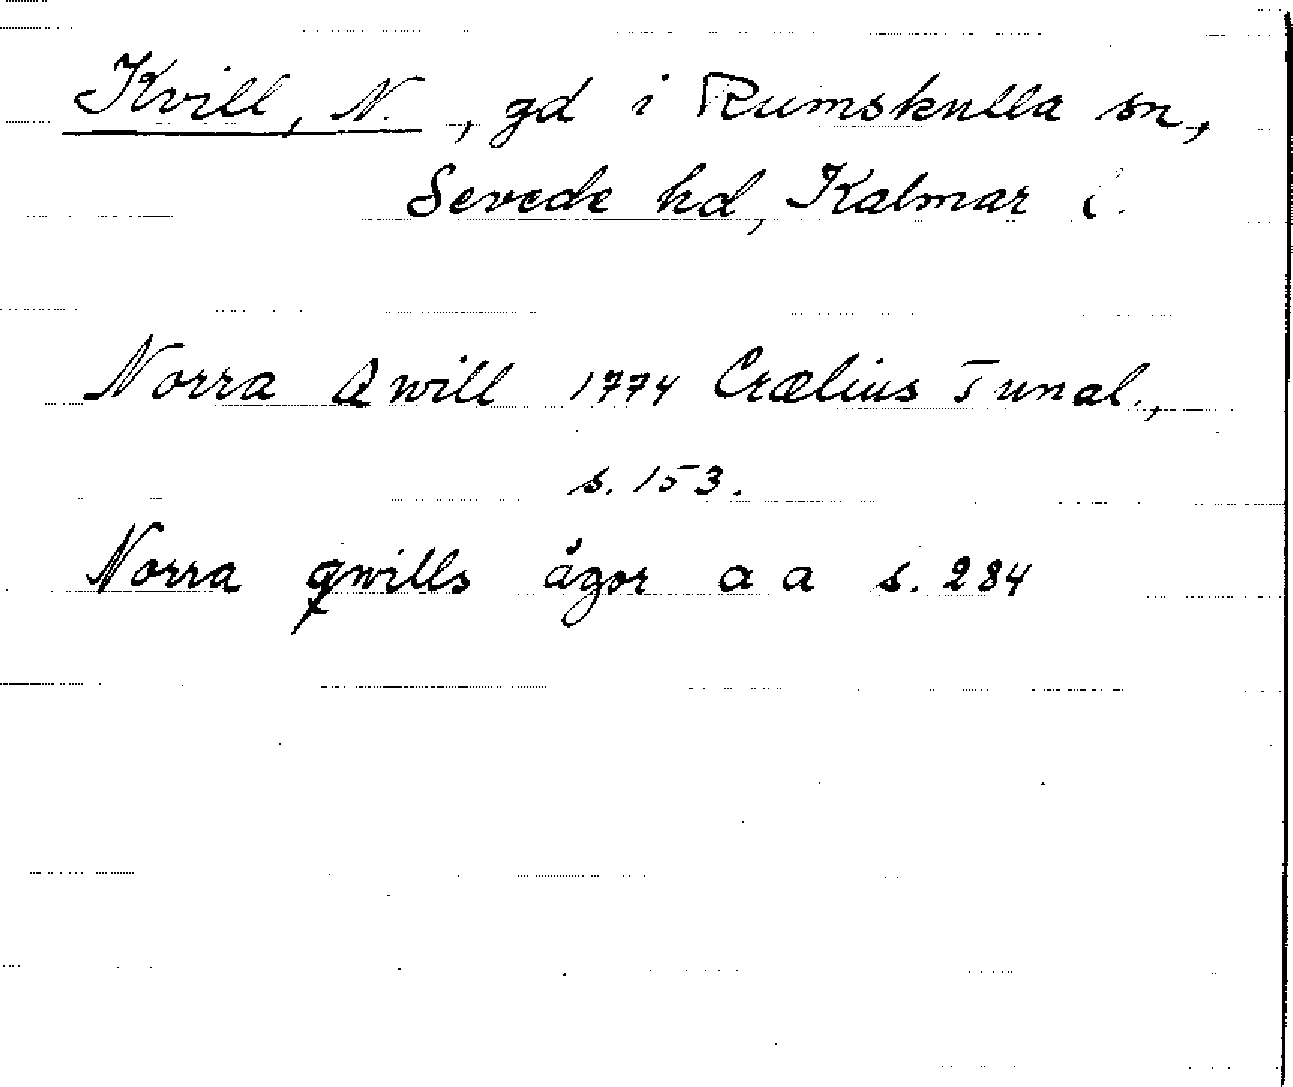 Kvill, N., gd i Rumskulla sn,
Sevede hd, Kalmar l.
Norra Qwill 1774 Crælius Tunal.,
s. 153.
Norra qwills ågor a a s. 284